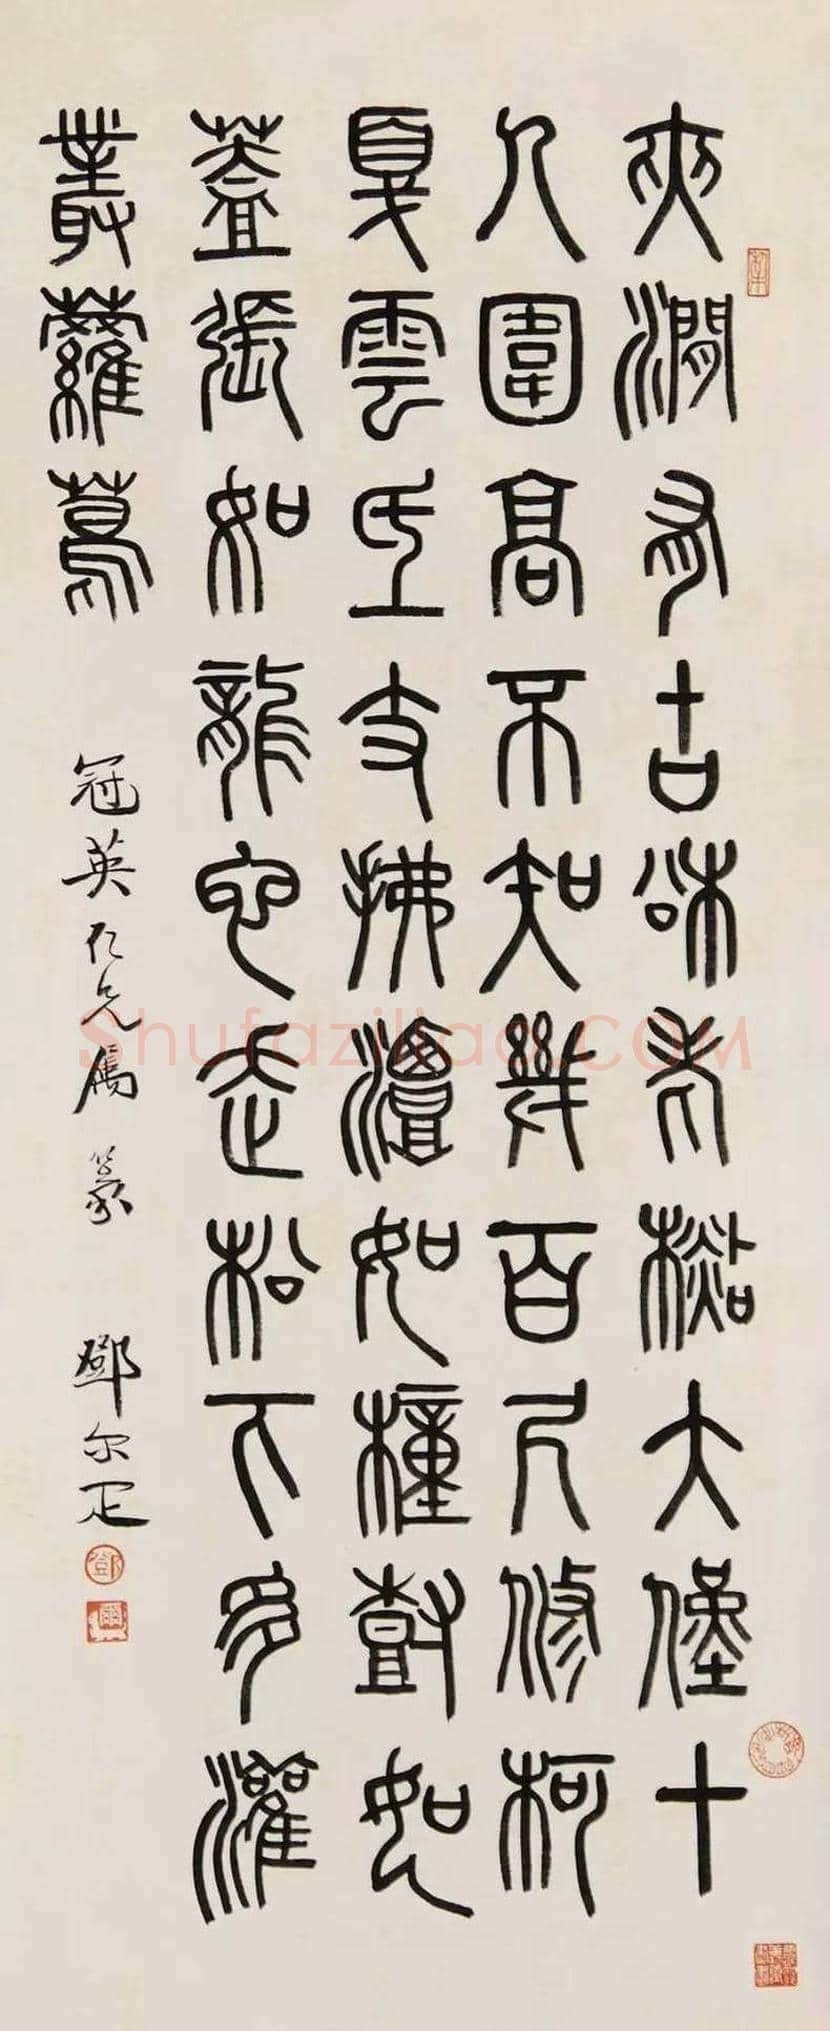 夾澗有古松老杉大僅十
人圍高不知幾百尺修柯
戛雲氐支拂潭如橦尌如
蓋張如龍它走松下多灌
叢蘿蔦
冠英仁兄屬篆 鄧尔疋
Shufaziliao.COM